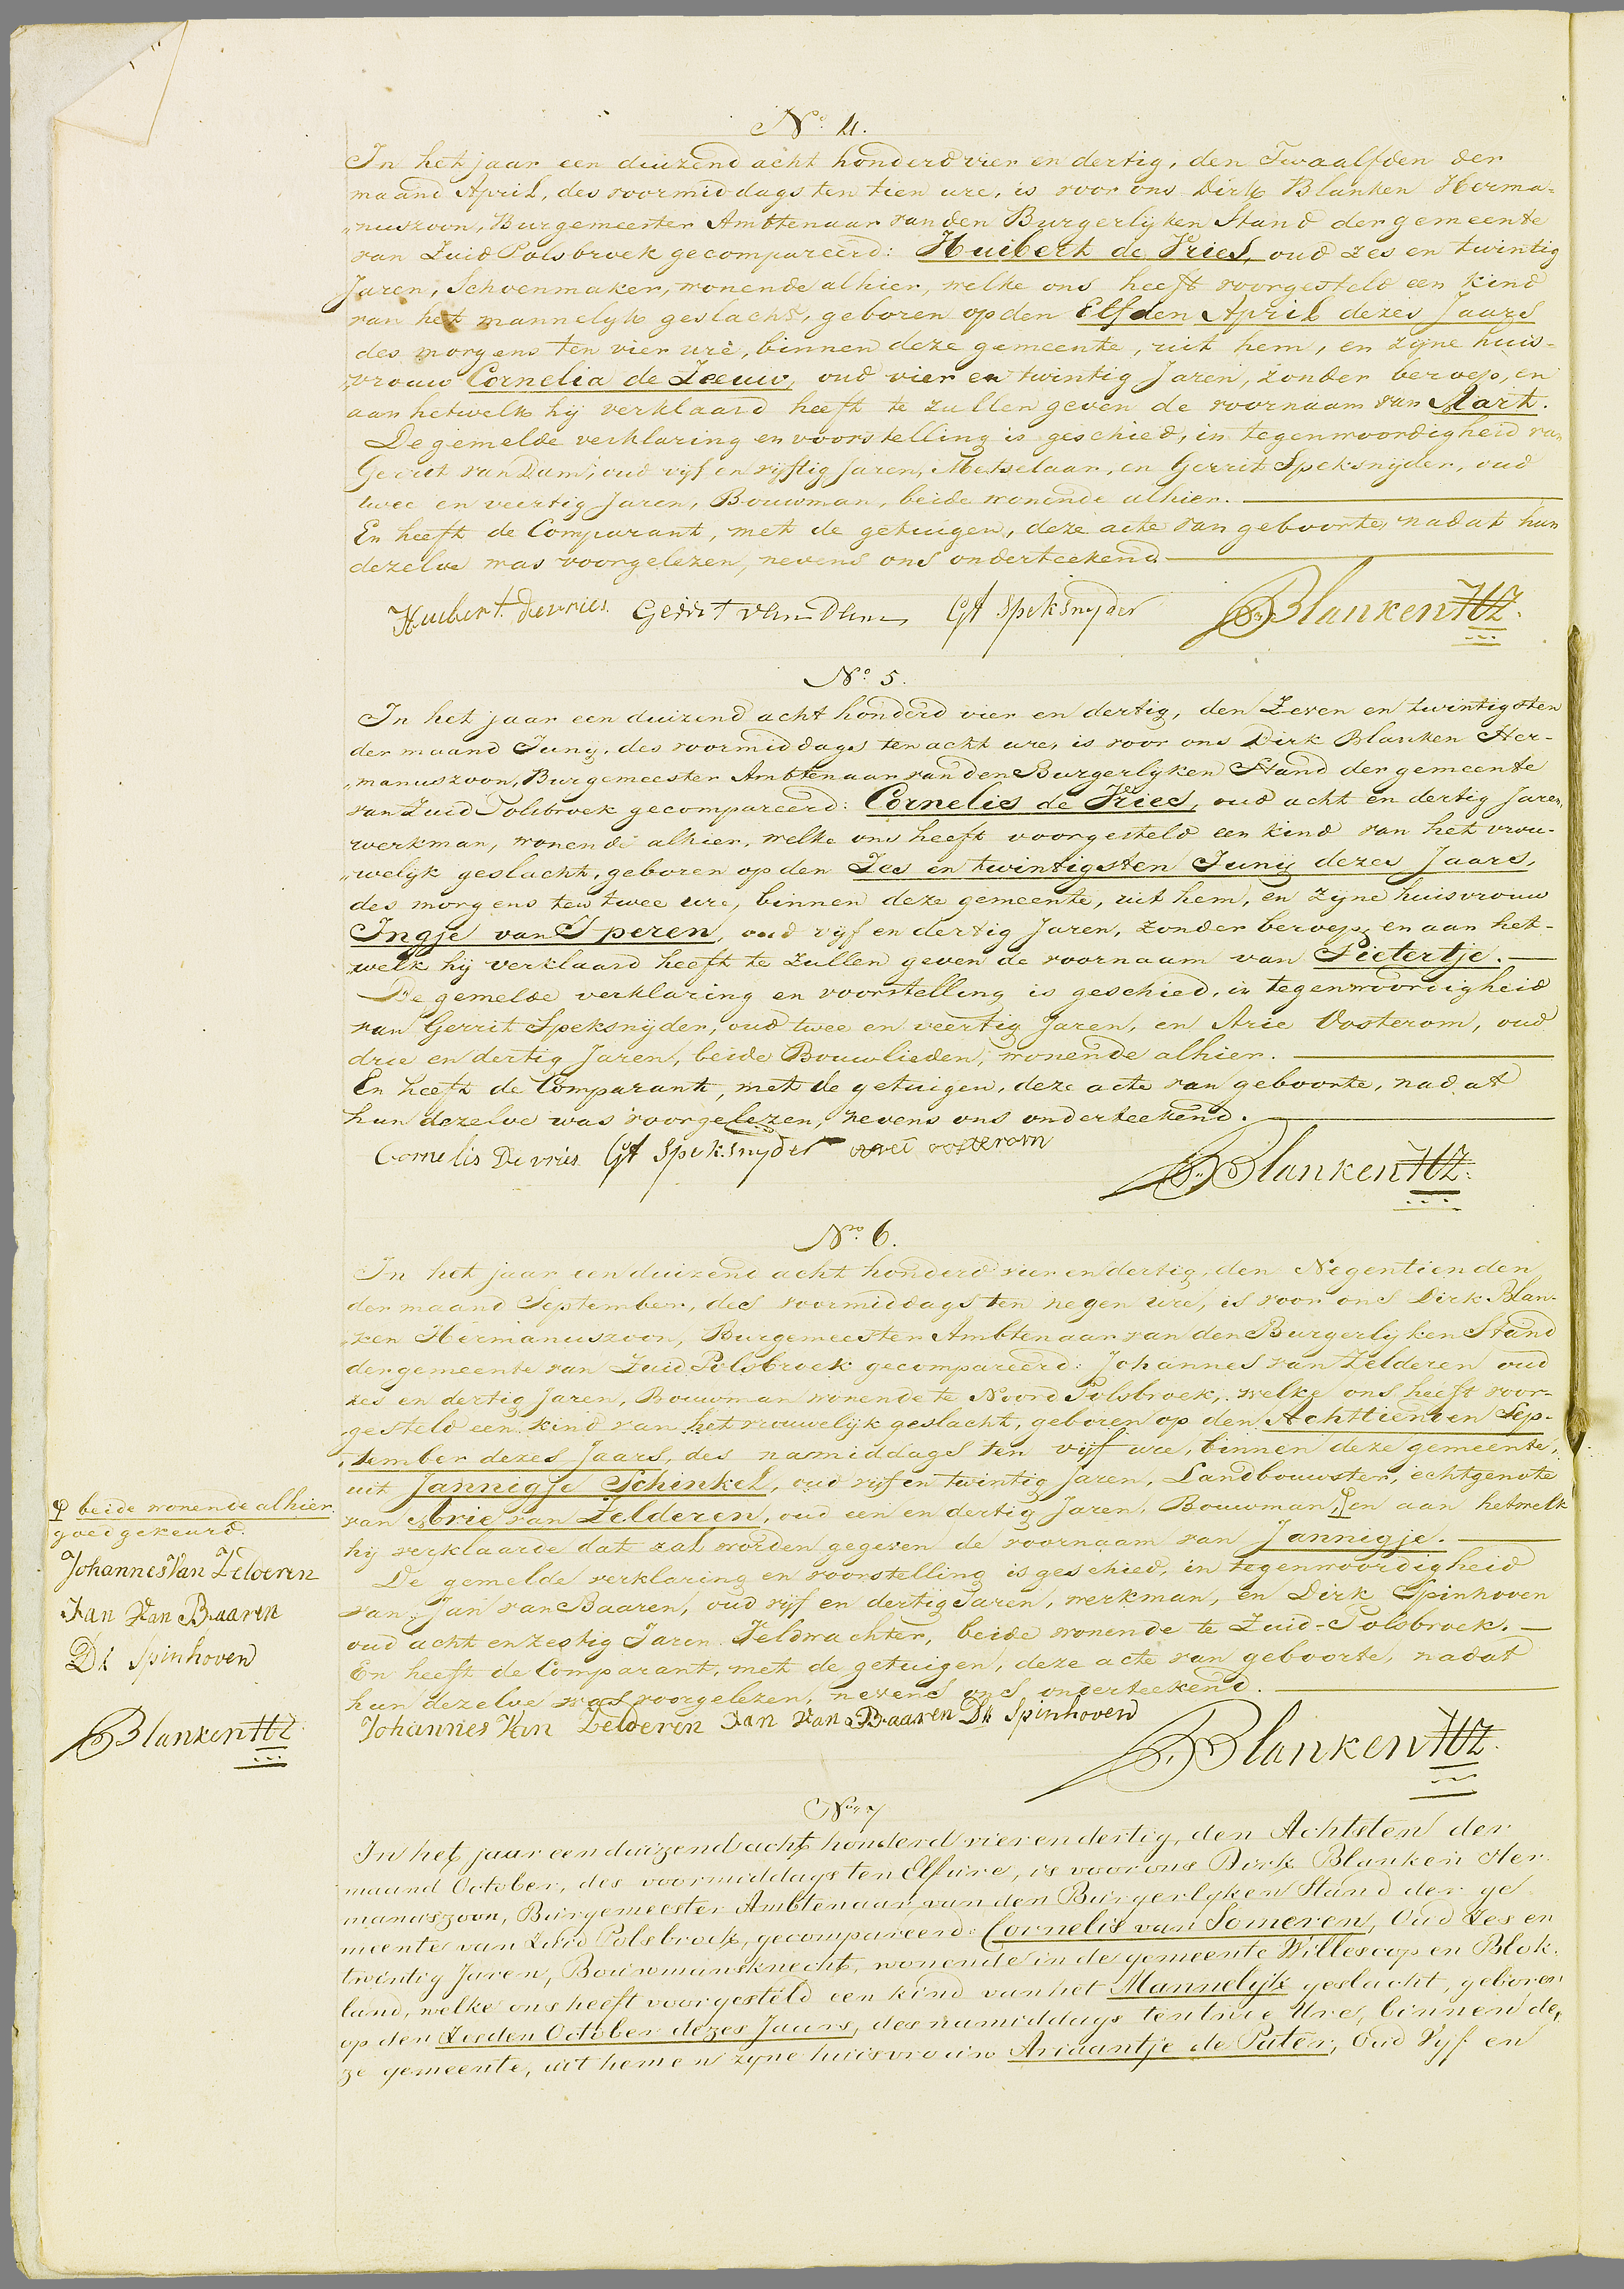 No. 4.
In het jaar een duizend acht honderd vier en dertig, den Twaalfden der
maand April, des voormiddags ten tien ure, is voor ons Dirk Blanken Herma-
„nuszoon, Burgemeester Ambtenaar van den Burgerlijken Stand der gemeente
van Zuid Polsbroek gecompareerd: Huibert de Vries, oud zes en twintig
Jaren, Schoenmaker, wonende alhier, welke ons heeft voorgesteld een kind
van het mannelijk geslacht, geboren op den Elfden April dezes Jaars
des morgens ten vier ure, binnen deze gemeente, uit hem, en zijne huis-
„vrouw Cornelia de Leeuw, oud vier en twintig Jaren, zonder beroep, en
aan hetwelk hij verklaard heeft te zullen geven de voornaam van Aart.
De gemelde verklaring en voorstelling is geschied, in tegenwoordigheid van
Gerrit van Dam, oud vijf en vijftig Jaren, Metselaar, en Gerrit Speksnijder, oud
twee en veertig Jaren, Bouwman, beide wonende alhier.
En heeft de Comparant, met de getuigen, deze acte van geboorte, nadat hun
dezelve was voorgelezen, nevens ons onderteekend
Huibert devries Gerrit van Dam Gt Speksnyder DBlanken HZ.
No. 5.
In het jaar een duizend acht honderd vier en dertig, den Zeven en twintigsten
der maand Junij, des voormiddags ten acht ure, is voor ons Dirk Blanken Her-
„manuszoon, Burgemeester Ambtenaar van den Burgerlijken Stand der gemeente
van Zuid Polsbroek gecompareerd: Cornelis de Vries, oud acht en dertig Jaren,
werkman, wonende alhier, welke ons heeft voorgesteld een kind van het vrou-
„welijk geslacht, geboren op den Zes en twintigsten Junij dezes Jaars,
des morgens ten twee ure, binnen deze gemeente, uit hem, en zijne huisvrouw
Ingje van Iperen, oud vijf en dertig Jaren, zonder beroep, en aan het-
„welk hij verklaard heeft te zullen geven de voornaam van Pietertje.
De gemelde verklaring en voorstelling is geschied, in tegenwoordigheid
van Gerrit Speksnijder, oud twee en veertig Jaren, en Arie Oosterom, oud
drie en dertig Jaren, beide Bouwlieden, wonende alhier.
En heeft de Comparant, met de getuigen, deze acte van geboorte, nadat
hun dezelve was voorgelezen, nevens ons onderteekend.
Cornelis De vries Gt Speksnyder arei oosterom
DBlanken HZ.
No. 6.
In het jaar een duizend acht honderd vier en dertig, den Negentienden
der maand September, des voormiddags ten negen ure, is voor ons Dirk Blan-
„ken Hermanuszoon, Burgemeester Ambtenaar van den Burgerlijken Stand
der gemeente van Zuid Polsbroek gecompareerd: Johannes van Zelderen oud
zes en dertig Jaren, Bouwman wonende te Noord Polsbroek, welke ons heeft voor-
„gesteld een kind van het vrouwelijk geslacht, geboren op den Achttienden Sep-
„tember dezes Jaars, des namiddags ten vijf ure, binnen deze gemeente,
uit Jannigje Schinkel, oud vijf en twintig Jaren, Landbouwster, echtgenote
van Arie van Zelderen, oud een en dertig Jaren, Bouwman, φ en aan hetwelk
hij verklaarde dat zal worden gegeven de voornaam van Jannigje.
De gemelde verklaring en voorstelling is geschied, in tegenwoordigheid
van Jan van Baaren, oud vijf en dertig Jaren, werkman, en Dirk Spinhoven
oud acht en zestig Jaren Veldwachter, beide wonende te Zuid-Polsbroek.
En heeft de Comparant, met de getuigen, deze acte van geboorte, nadat
hun dezelve was voorgelezen, nevens ons onderteekend.
Johannes Van Zelderen Jan Van Baaren Dk Spinhoven
DBlanken HZ.
φ beide wonende alhier
goedgekeurd.
Johannes Van Zelderen
Jan Van Baaren
Dk Spinhoven
DBlanken HZ
No. 7
In het jaar een duizend acht honderd vier en dertig, den Achtsten der
maand October, des voormiddags ten Elf ure, is voor ons Dirk Blanken Her
manuszoon, Burgemeester Ambtenaar van den Burgerlyken Stand der ge
meente van Zuid Polsbroek, gecompareerd: Cornelis van Someren, Oud Zes en
twintig Jaren, Bouwmansknecht, wonende in de gemeente Willescop en Blok-
land, welke ons heeft voorgesteld een kind van het Mannelijk geslacht, geboren
op den Zesden October dezes Jaars, des namiddags ten twee Ure, binnen de
ze gemeente, uit hem en zyne huisvrouw Ariaantje de Pater, Oud Vyf en